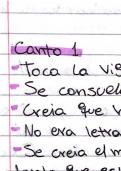 Canto 1
- Toca la vig
- Se consuel
- Creia que v
- No era letra
- Se creia el m